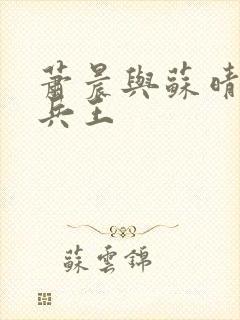 蕭晨與蘇晴
兵王
蘇雲錦